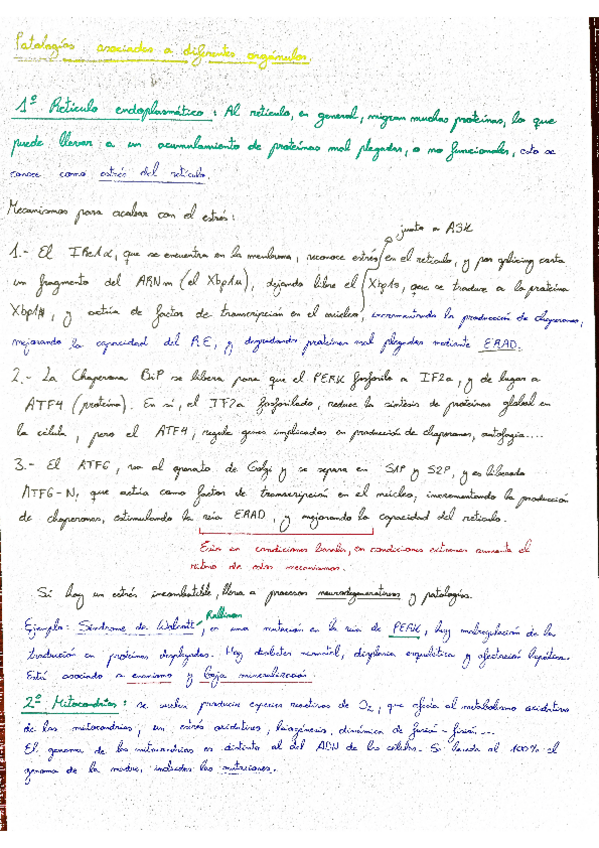 Patologías asociadas a diferentes orgánulos.
1º Retículo endoplasmático: Al retículo, en general, migran muchas proteínas, lo que
puede llevar a un acumulamiento de proteínas mal plegadas, o no funcionales, esto se
conoce como estrés del retículo.
Mecanismos para acabar con el estrés:
junto a ASK
1.- El IRe1α, que se encuentra en la membrana, reconoce estrés en el retículo, y por splicing corta
un fragmento del ARNm (el Xbp1u), dejando libre el Xbp1s, que se traduce a la proteína
Xbp1s, y actúa de factor de transcripción en el núcleo, incrementando la producción de chaperonas,
mejorando la capacidad del R.E, y degradando proteínas mal plegadas mediante ERAD.
2.- La Chaperona BiP se libera para que el PERK fosforile a IF2a, y de lugar a
ATF4 (proteína). En sí, el IF2a fosforilado, reduce la síntesis de proteínas global en
la célula, pero el ATF4, regula genes implicados en producción de chaperonas, autofagia....
3.- El ATF6, va al aparato de Golgi y se separa en S1P y S2P, y es liberado
ATF6-N, que actúa como factor de transcripción en el núcleo, incrementando la producción
de chaperonas, estimulando la vía ERAD, y mejorando la capacidad del retículo.
Esto en condiciones basales, en condiciones extremas aumenta el
ritmo de estos mecanismos.
Si hay un estrés incombatible, lleva a procesos neurodegenerativos y patologías.
Rallison
Ejemplo: Síndrome de Wolcott, en una mutación en la vía de PERK, hay malregulación de la
traducción en proteínas desplegadas. Hay diabetes neonatal, displasia esquelética y afectación hepática.
Está asociado a enanismo y baja mineralización
2º Mitocondrias: se suelen producir especies reactivas de O2, que afecta al metabolismo oxidativo
de las mitocondrias, un estrés oxidativo, biogénesis, dinámica de fusión-fisión...
El genoma de las mitocondrias es distinto al del ADN de las células. Se hereda al 100% el
genoma de la madre, incluidas las mutaciones.